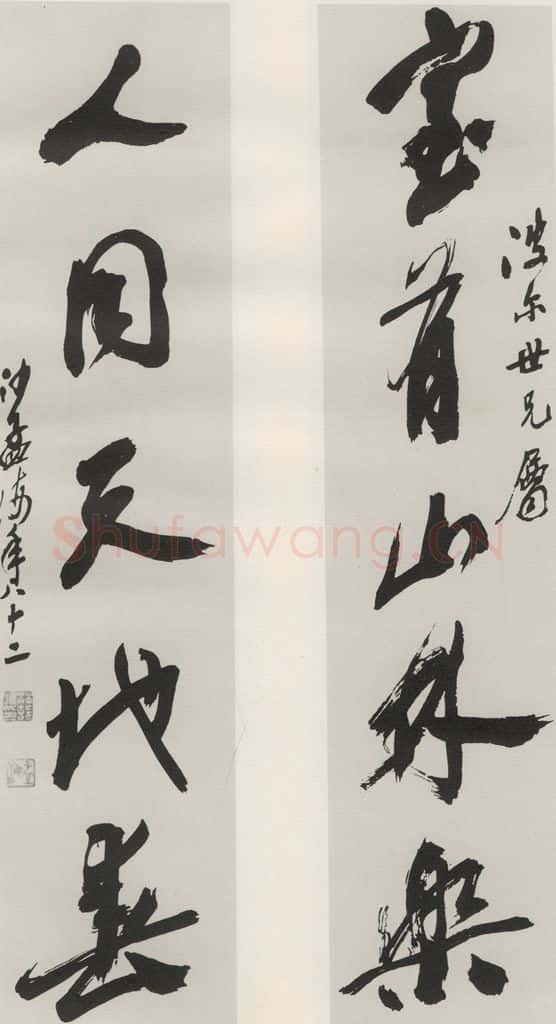 波尔世兄屬
室有山林樂
人同天地春
沙孟海年八十二
Shufawang.CN